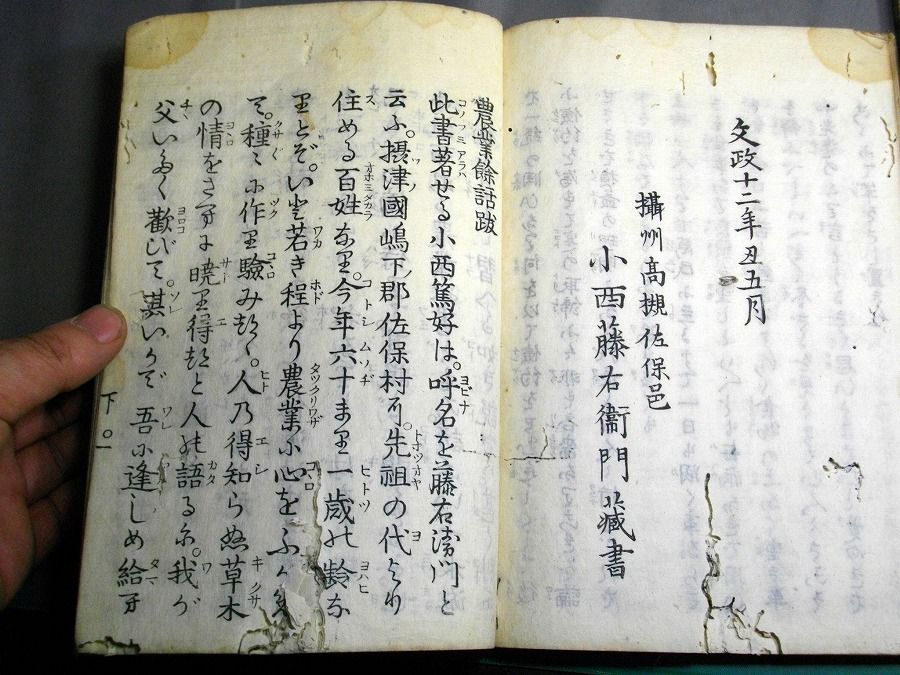 文政十二年丑五月
攝州高槻佐保邑
小西藤右衞門藏書
農業餘話跋
此書著せる小西篤好は。呼名を藤右衛門と
云ふ。摂津國嶋下郡佐保村に。先祖の代より
住める百姓なり。今年六十まり一歳の齢な
りとぞ。いと若き程より農業に心をふかく
て。種々に作り驗みある。人の得知らぬ草木
の情をさへに曉り得ると人の語るに。我が
父いたく歡びて。其いかで吾に逢しめ給へ
下〇一